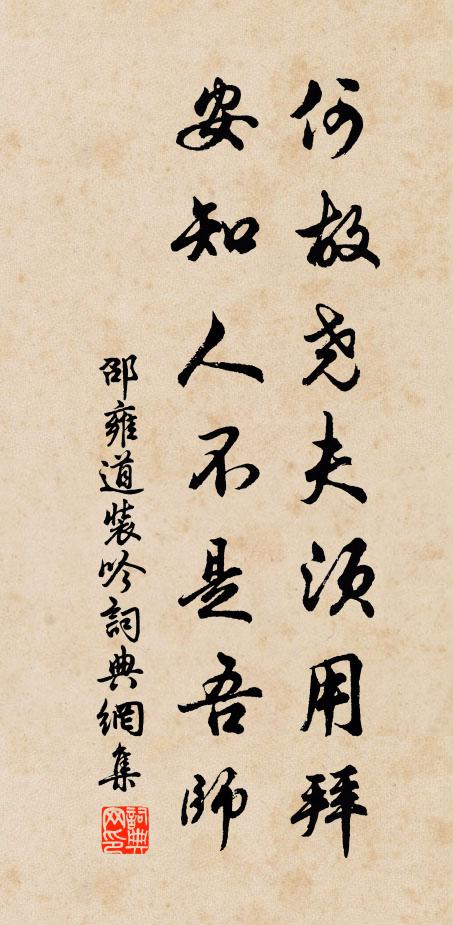 何故尧夫须用拜
安知人不是吾师
邵雍道裝吟詞典網集
詞典網印